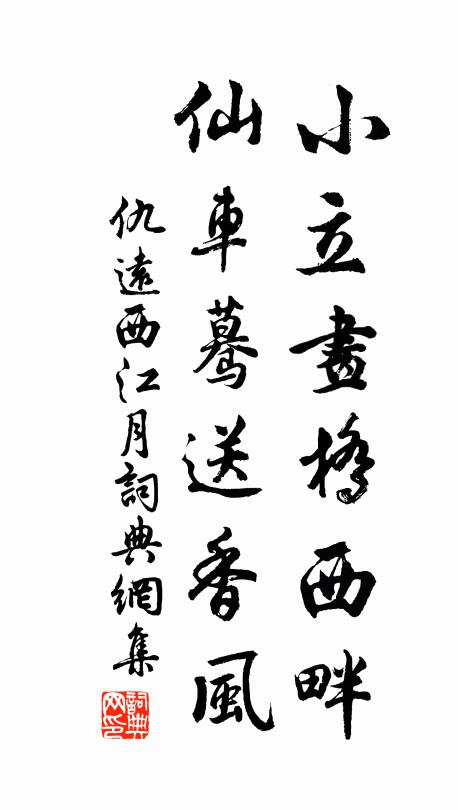 小立畫橋西畔
仙車驀送香風
仇遠西江月詞典網集
詞典
网印